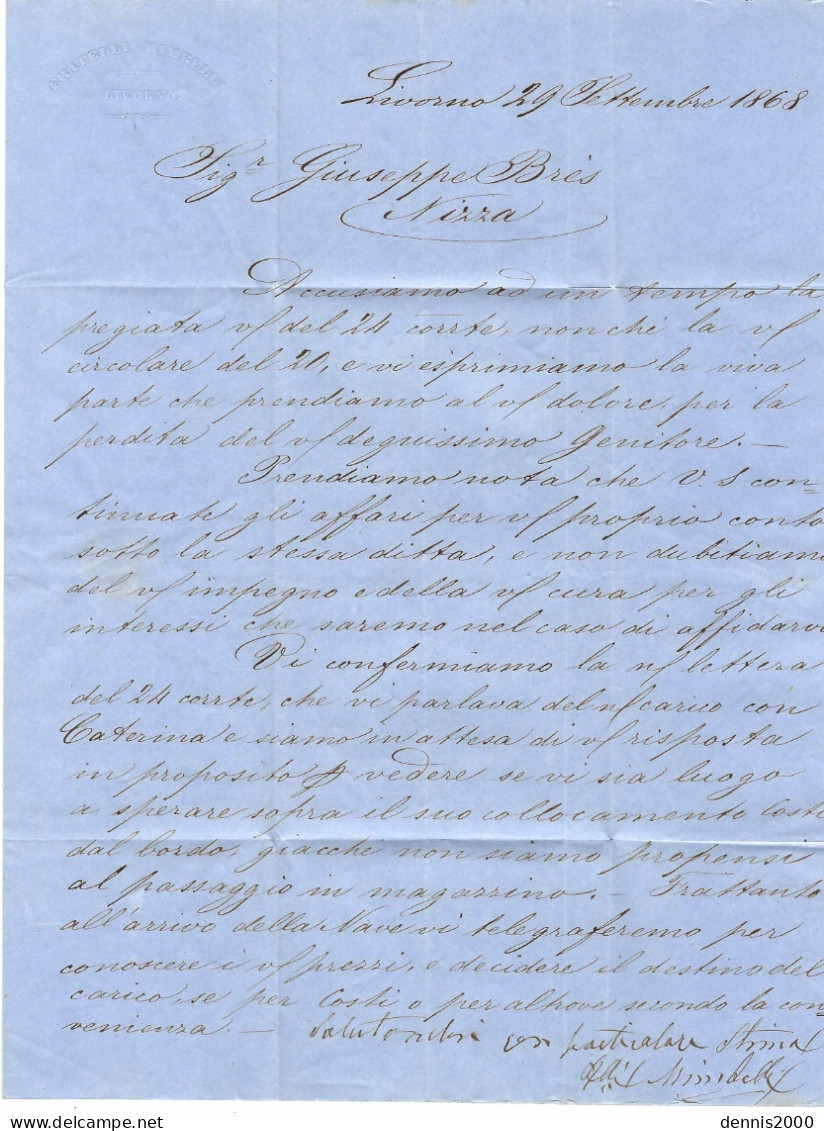 FRATELLI
LIVORNO
Livorno 29 Settembre 1868
Sigr Giuseppe Brès
Nizza
Accusiamo ad un tempo la
pregiata v/ del 24 corrte, nonchè la v/
circolare del 20, e vi esprimiamo la viva
parte che prendiamo al v/ dolore, per la
perdita del v/ degnissimo Genitore. —
Prendiamo nota che V. S con=
tinuate gli affari per v/ proprio conto
sotto la stessa ditta, e non dubitiamo
del v/ impegno e della v/ cura per gli
interessi che saremo nel caso di affidarvi
Vi confermiamo la n/ lettera
del 24 corrte, che vi parlava del n/ carico con
Caterina e siamo in attesa di v/ risposta
in proposito p vedere se vi sia luogo
a sperare sopra il suo collocamento Costì
dal bordo, giacchè non siamo propensi
al passaggio in magazzino. — Frattanto
all'arrivo della Nave vi telegraferemo per
conoscere i v/ prezzi, e decidere il destino del
carico, se per Costì o per altrove secondo la con=
venienza. — Salutandovi con particolare stima
Flli Mimbelli
delcampe.net
dennis2000